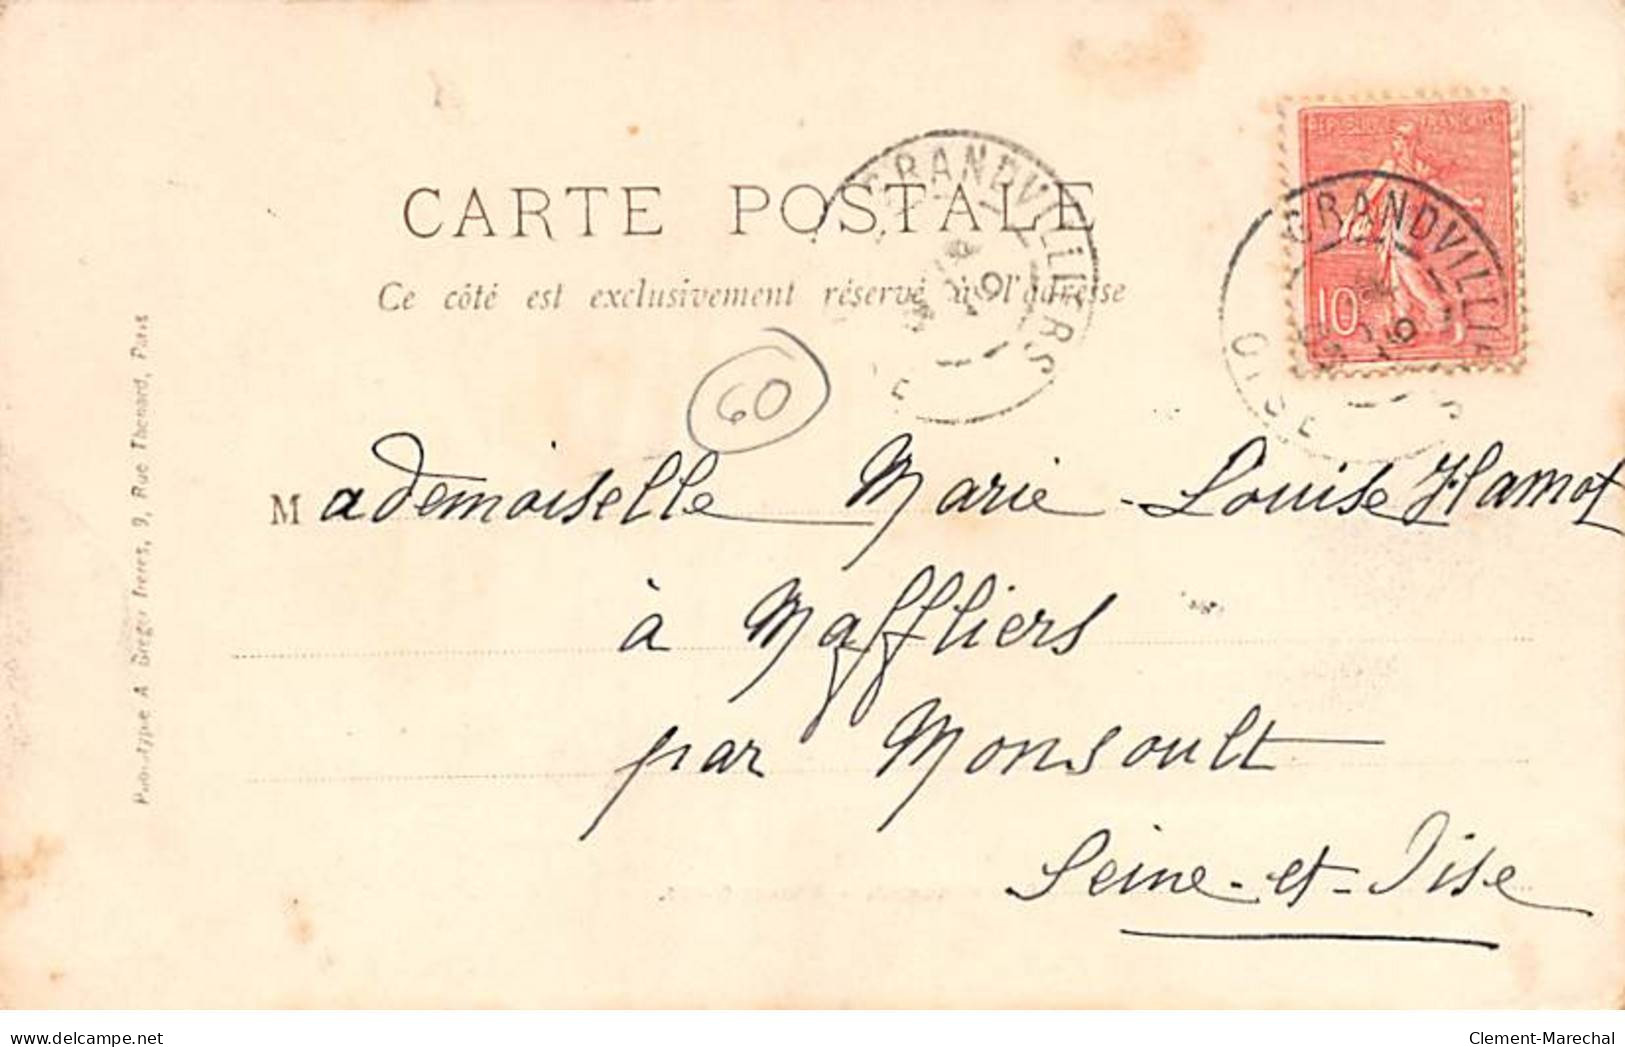 CARTE POSTALE
Ce côté est exclusivement réservé à l'adresse
GRANDVILLIERS
GRANDVILLIERS
OISE
10
60
Mademoiselle Marie-Louise Hamot
à Maffliers
par Monsoult
Seine-et-Oise
Phototype A Breger frères, 9, Rue Thenard, Paris
www.delcampe.net
Clement-Marechal